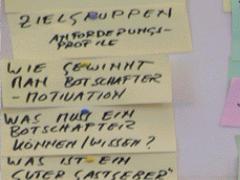 ZIELGRUPPEN
ANFORDERUNGS-
PROFILE
WIE GEWINNT
MAN BOTSCHAFTER
- MOTIVATION
WAS MUß EIN
BOTSCHAFTER
KÖNNEN/WISSEN?
WAS IST EIN
"GUTER GASTGEBER"